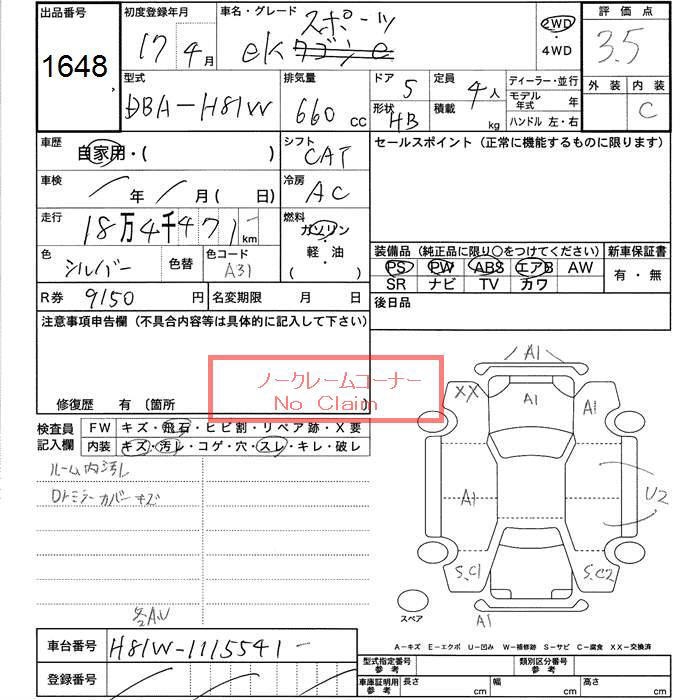 出品番号
1648
初度登録年月
17年4月
車名・グレード
スポーツ
ekワゴンe
2WD
・
4WD
評価点
3.5
外装 内装
C
型式
DBA-H81W
排気量
660 cc
ドア 5
定員 4人
形状 HB
積載 kg
ディーラー・並行
モデル年式 年
ハンドル 左・右
車歴
自家用・( )
シフト
CAT
セールスポイント (正常に機能するものに限ります)
車検
年 月 ( 日)
冷房
AC
走行
18万4千471 km
燃料
ガソリン
・
軽・油
( )
色
シルバー
色替
色コード
A31
装備品 (純正品に限り○をつけてください) 新車保証書
PS PW ABS エアB AW
SR ナビ TV カワ
有・無
R券 9150 円
名変期限 月 日
後日品
注意事項申告欄 (不具合内容等は具体的に記入して下さい)
ノークレームコーナー
No Claim
修復歴 有 〔箇所
検査員記入欄
FW キズ・飛石・ヒビ割・リペア跡・X要
内装 キズ・汚レ・コゲ・穴・スレ・キレ・破レ
ルーム内汚れ
Dドミラーカバーキズ
各A.U
A1
XX
A1
A1
A1
U2
S.C1
S.C2
A1
スペア
A-キズ E-エクボ U-凹み W-補修跡 S-サビ C-腐食 XX-交換済
車台番号
H81W-1115541
登録番号
型式指定番号
参考
類別区分番号
参考
車庫証明用
参考
長さ cm
幅 cm
高さ cm